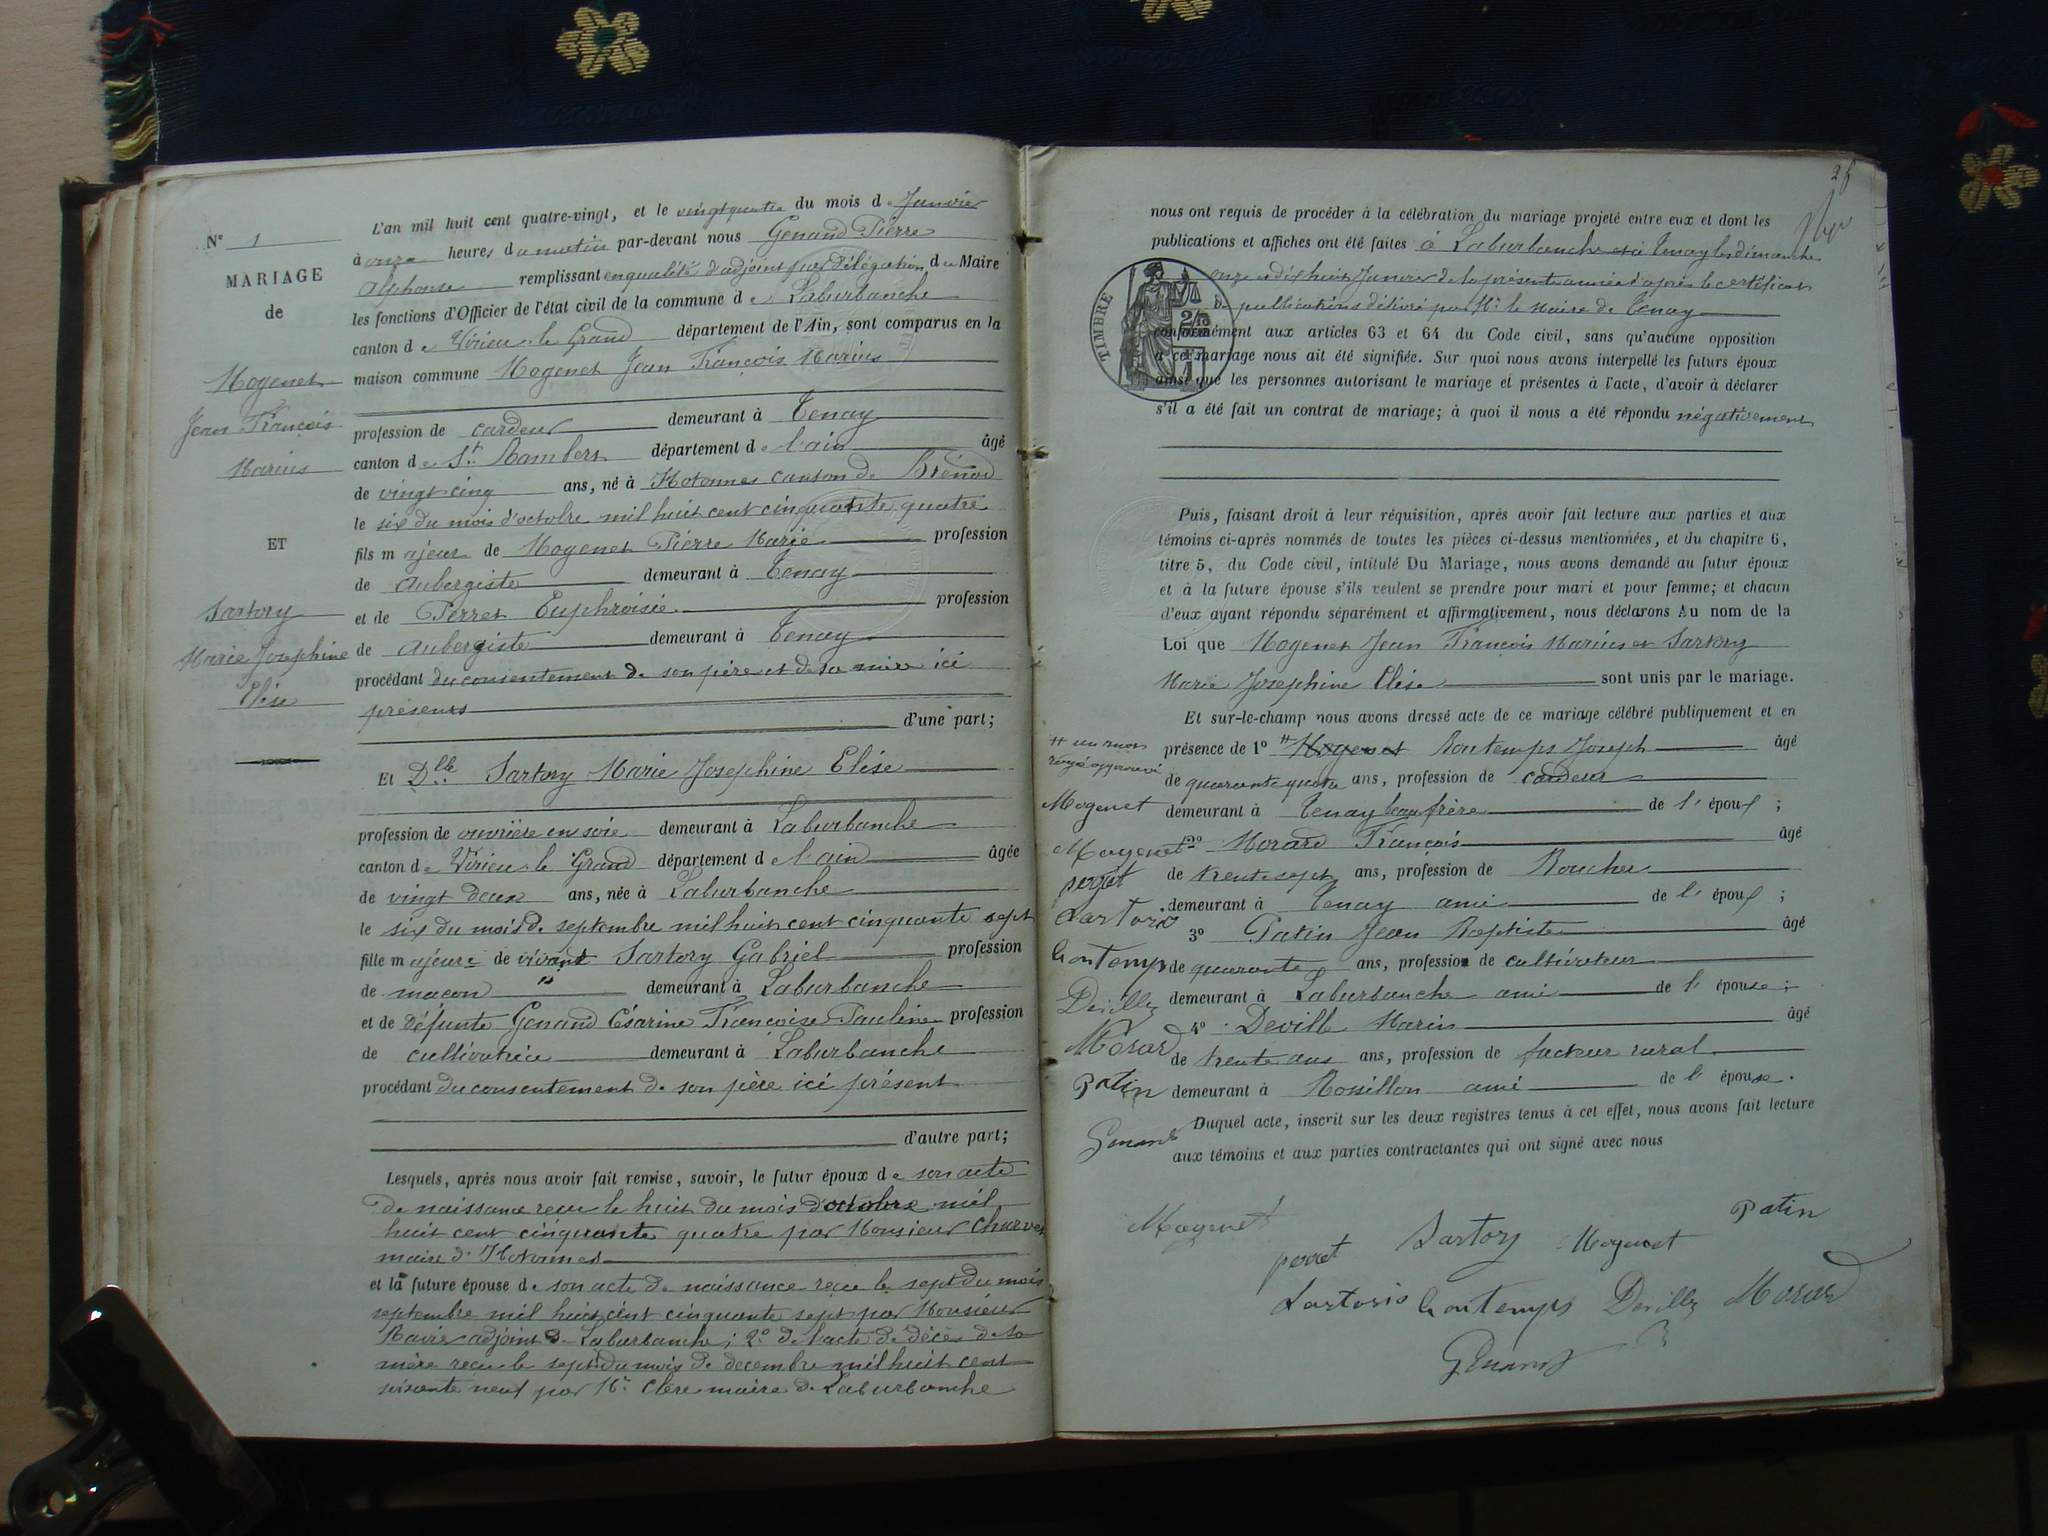 N° 1
MARIAGE
de
Mogenet
Jean François
Marius
ET
Sartory
Marie Josephine
Elise
L'an mil huit cent quatre-vingt, et le vingtquatre du mois de Janvier
à onze heures du matin par-devant nous Genand Pierre
Alphonse remplissant en qualité d'adjoint par délégation du Maire
les fonctions d'Officier de l'état civil de la commune de Laburbanche
canton de Virieu-le-Grand département de l'Ain, sont comparus en la
maison commune Mogenet Jean François Marius
profession de cardeur demeurant à Tenay
canton de St Rambert département de l'ain âgé
de vingt cinq ans, né à Hotonnes canton de Brénod
le six du mois d'octobre mil huit cent cinquante quatre
fils majeur de Mogenet Pierre Marie profession
de aubergiste demeurant à Tenay
et de Perret Euphroisie profession
de aubergiste demeurant à Tenay
procédant du consentement de son père et de sa mère ici
présents
d'une part;
Et Dlle Sartory Marie Josephine Elise
profession de ouvrière en soie demeurant à Laburbanche
canton de Virieu-le-Grand département de l'ain âgée
de vingt deux ans, née à Laburbanche
le six du mois de septembre mil huit cent cinquante sept
fille majeure de vivant Sartory Gabriel profession
de maçon demeurant à Laburbanche
et de défunte Genand Césarine Françoise Pauline profession
de cultivatrice demeurant à Laburbanche
procédant du consentement de son père ici présent
d'autre part;
Lesquels, après nous avoir fait remise, savoir, le futur époux de son acte
de naissance reçu le huit du mois d'octobre mil
huit cent cinquante quatre par Monsieur Charvet
maire d'Hotonnes
et la future épouse de son acte de naissance reçu le sept du mois
septembre mil huit cent cinquante sept par Monsieur
adjoint de Laburbanche; 2° de l'acte de décès de sa
mère reçu le sept du mois de decembre mil huit cent
soixante neuf par Mr Clerc maire de Laburbanche
nous ont requis de procéder à la célébration du mariage projeté entre eux et dont les
publications et affiches ont été faites à Laburbanche et à Tenay les dimanches
onze et dix huit Janvier de la présente année d'après le certificat
de publications délivré par Mr le maire de Tenay
TIMBRE
2/10
conformément aux articles 63 et 64 du Code civil, sans qu'aucune opposition
à cet mariage nous ait été signifiée. Sur quoi nous avons interpellé les futurs époux
ainsi que les personnes autorisant le mariage et présentes à l'acte, d'avoir à déclarer
s'il a été fait un contrat de mariage; à quoi il nous a été répondu négativement
Puis, faisant droit à leur réquisition, après avoir fait lecture aux parties et aux
témoins ci-après nommés de toutes les pièces ci-dessus mentionnées, et du chapitre 6,
titre 5, du Code civil, intitulé Du Mariage, nous avons demandé au futur époux
et à la future épouse s'ils veulent se prendre pour mari et pour femme; et chacun
d'eux ayant répondu séparément et affirmativement, nous déclarons Au nom de la
Loi que Mogenet Jean François Marius et Sartory
Marie Josephine Elise sont unis par le mariage.
Et sur-le-champ nous avons dressé acte de ce mariage célébré publiquement et en
présence de 1° Mogenet Bontemps Joseph âgé
de quarante quatre ans, profession de cardeur
demeurant à Tenay beau frère de l'époux ;
2° Morard François âgé
de trente sept ans, profession de Boucher
demeurant à Tenay ami de l'époux ;
3° Patin Jean Baptiste âgé
de quarante ans, profession de cultivateur
demeurant à Laburbanche ami de l'épouse ;
4° Deville Marin âgé
de trente ans ans, profession de facteur rural
demeurant à Rossillon ami de l'épouse.
Duquel acte, inscrit sur les deux registres tenus à cet effet, nous avons fait lecture
aux témoins et aux parties contractantes qui ont signé avec nous
un mot
rayé approuvé
Mogenet
Mogenet
perret
Sartoris
bontemps
Deville
Morard
Patin
Genand
Mogenet
perret
Sartory
Mogenet
Patin
Sartoris
bontemps
Deville
Morard
Genand